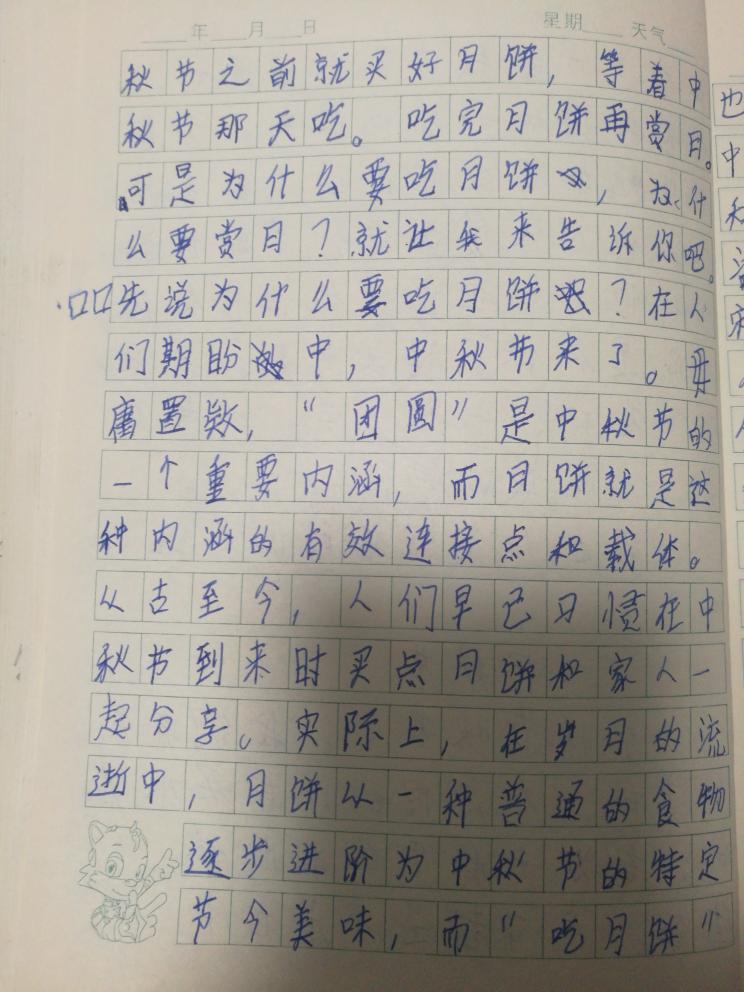 年 月 日 星期 天气
秋节之前就买好月饼，等着中
秋节那天吃。吃完月饼再赏月。
可是为什么要吃月饼，为什
么要赏月？就让我来告诉你吧。
先说为什么要吃月饼？在人
们期盼中，中秋节来了。毋
庸置疑，“团圆”是中秋节的
一个重要内涵，而月饼就是这
种内涵的有效连接点和载体。
从古至今，人们早已习惯在中
秋节到来时买点月饼和家人一
起分享。实际上，在岁月的流
逝中，月饼以一种普通的食物
逐步进阶为中秋节的特定
节令美味，而“吃月饼”
也
中